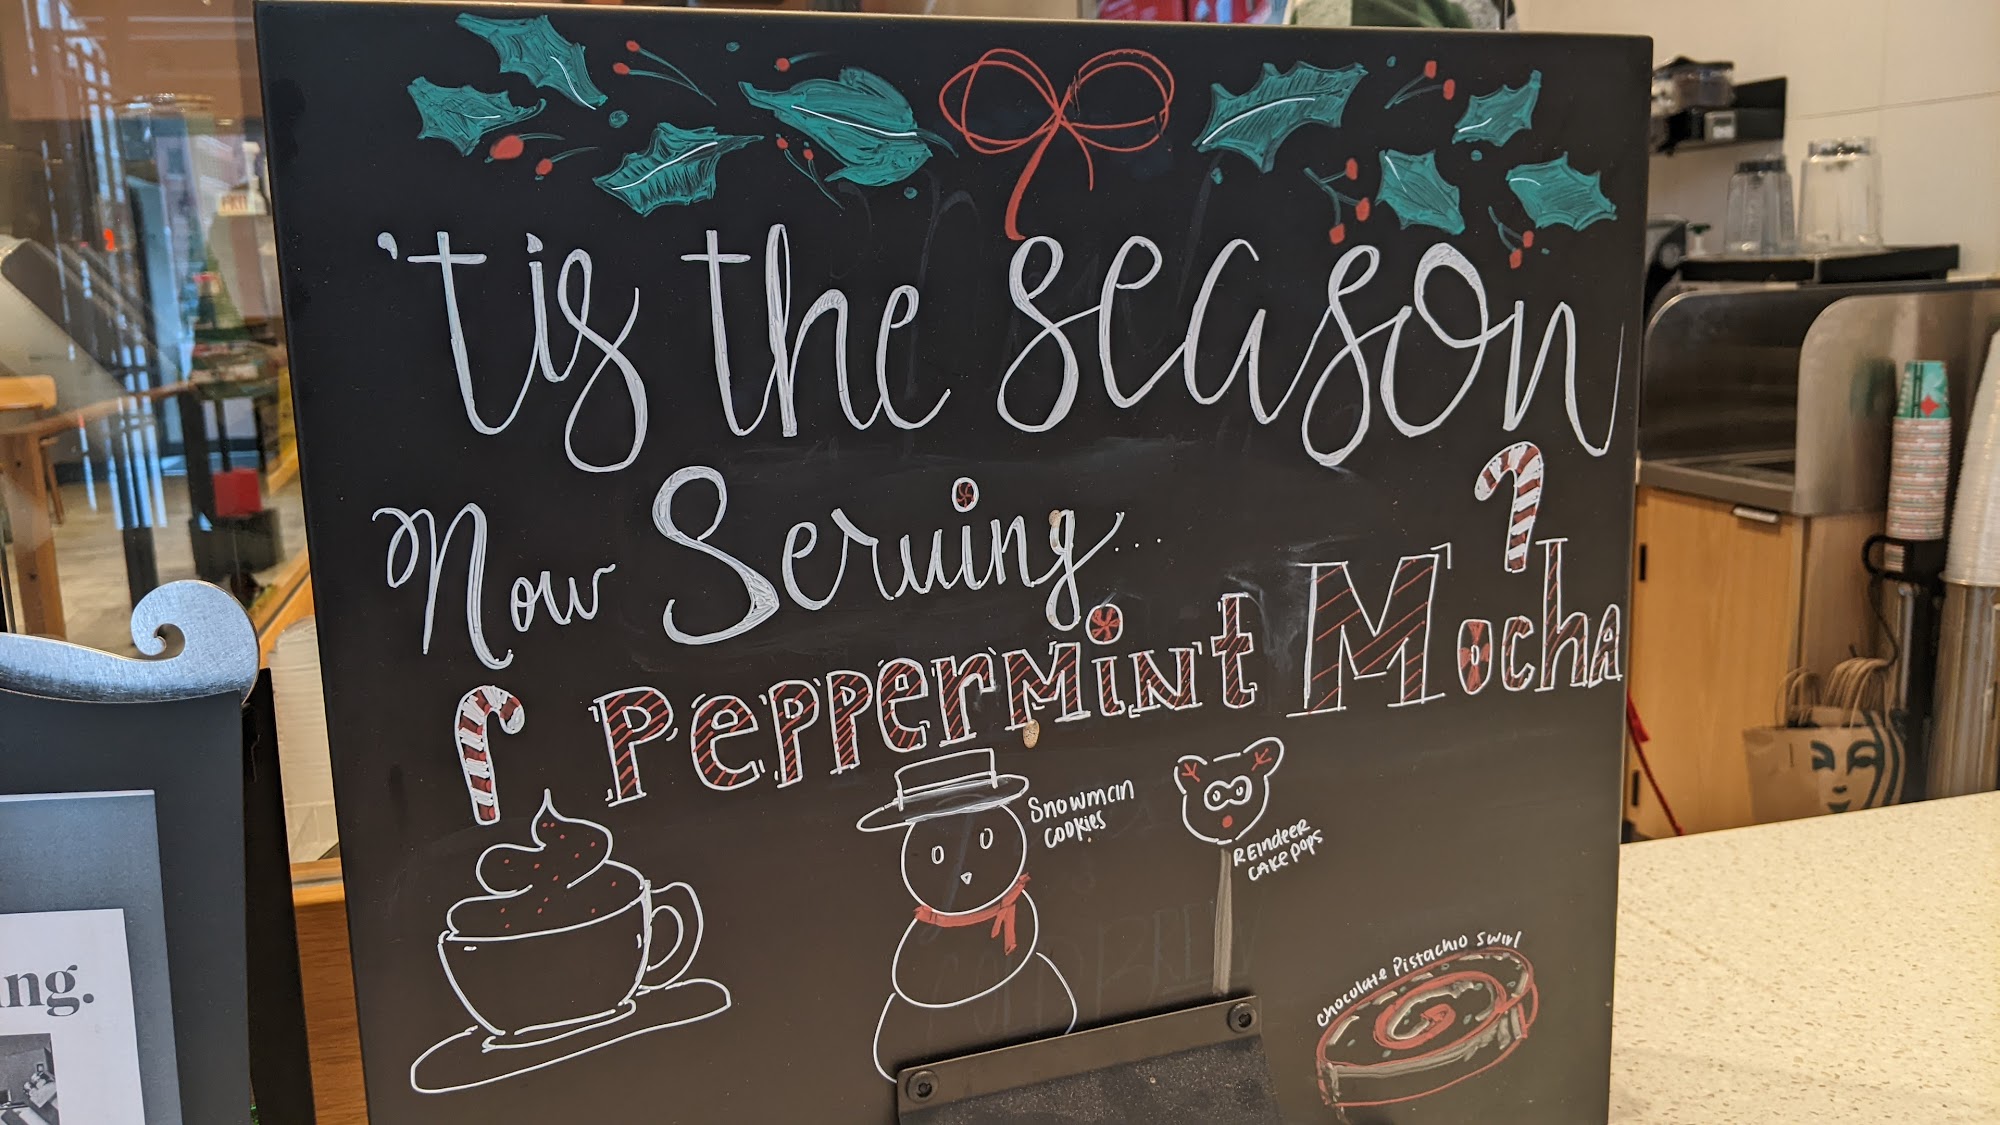 'tis the season
Now Serving...
Peppermint Mocha
Snowman
cookies
REindeer
cake pops
chocolate Pistachio swirl
ng.